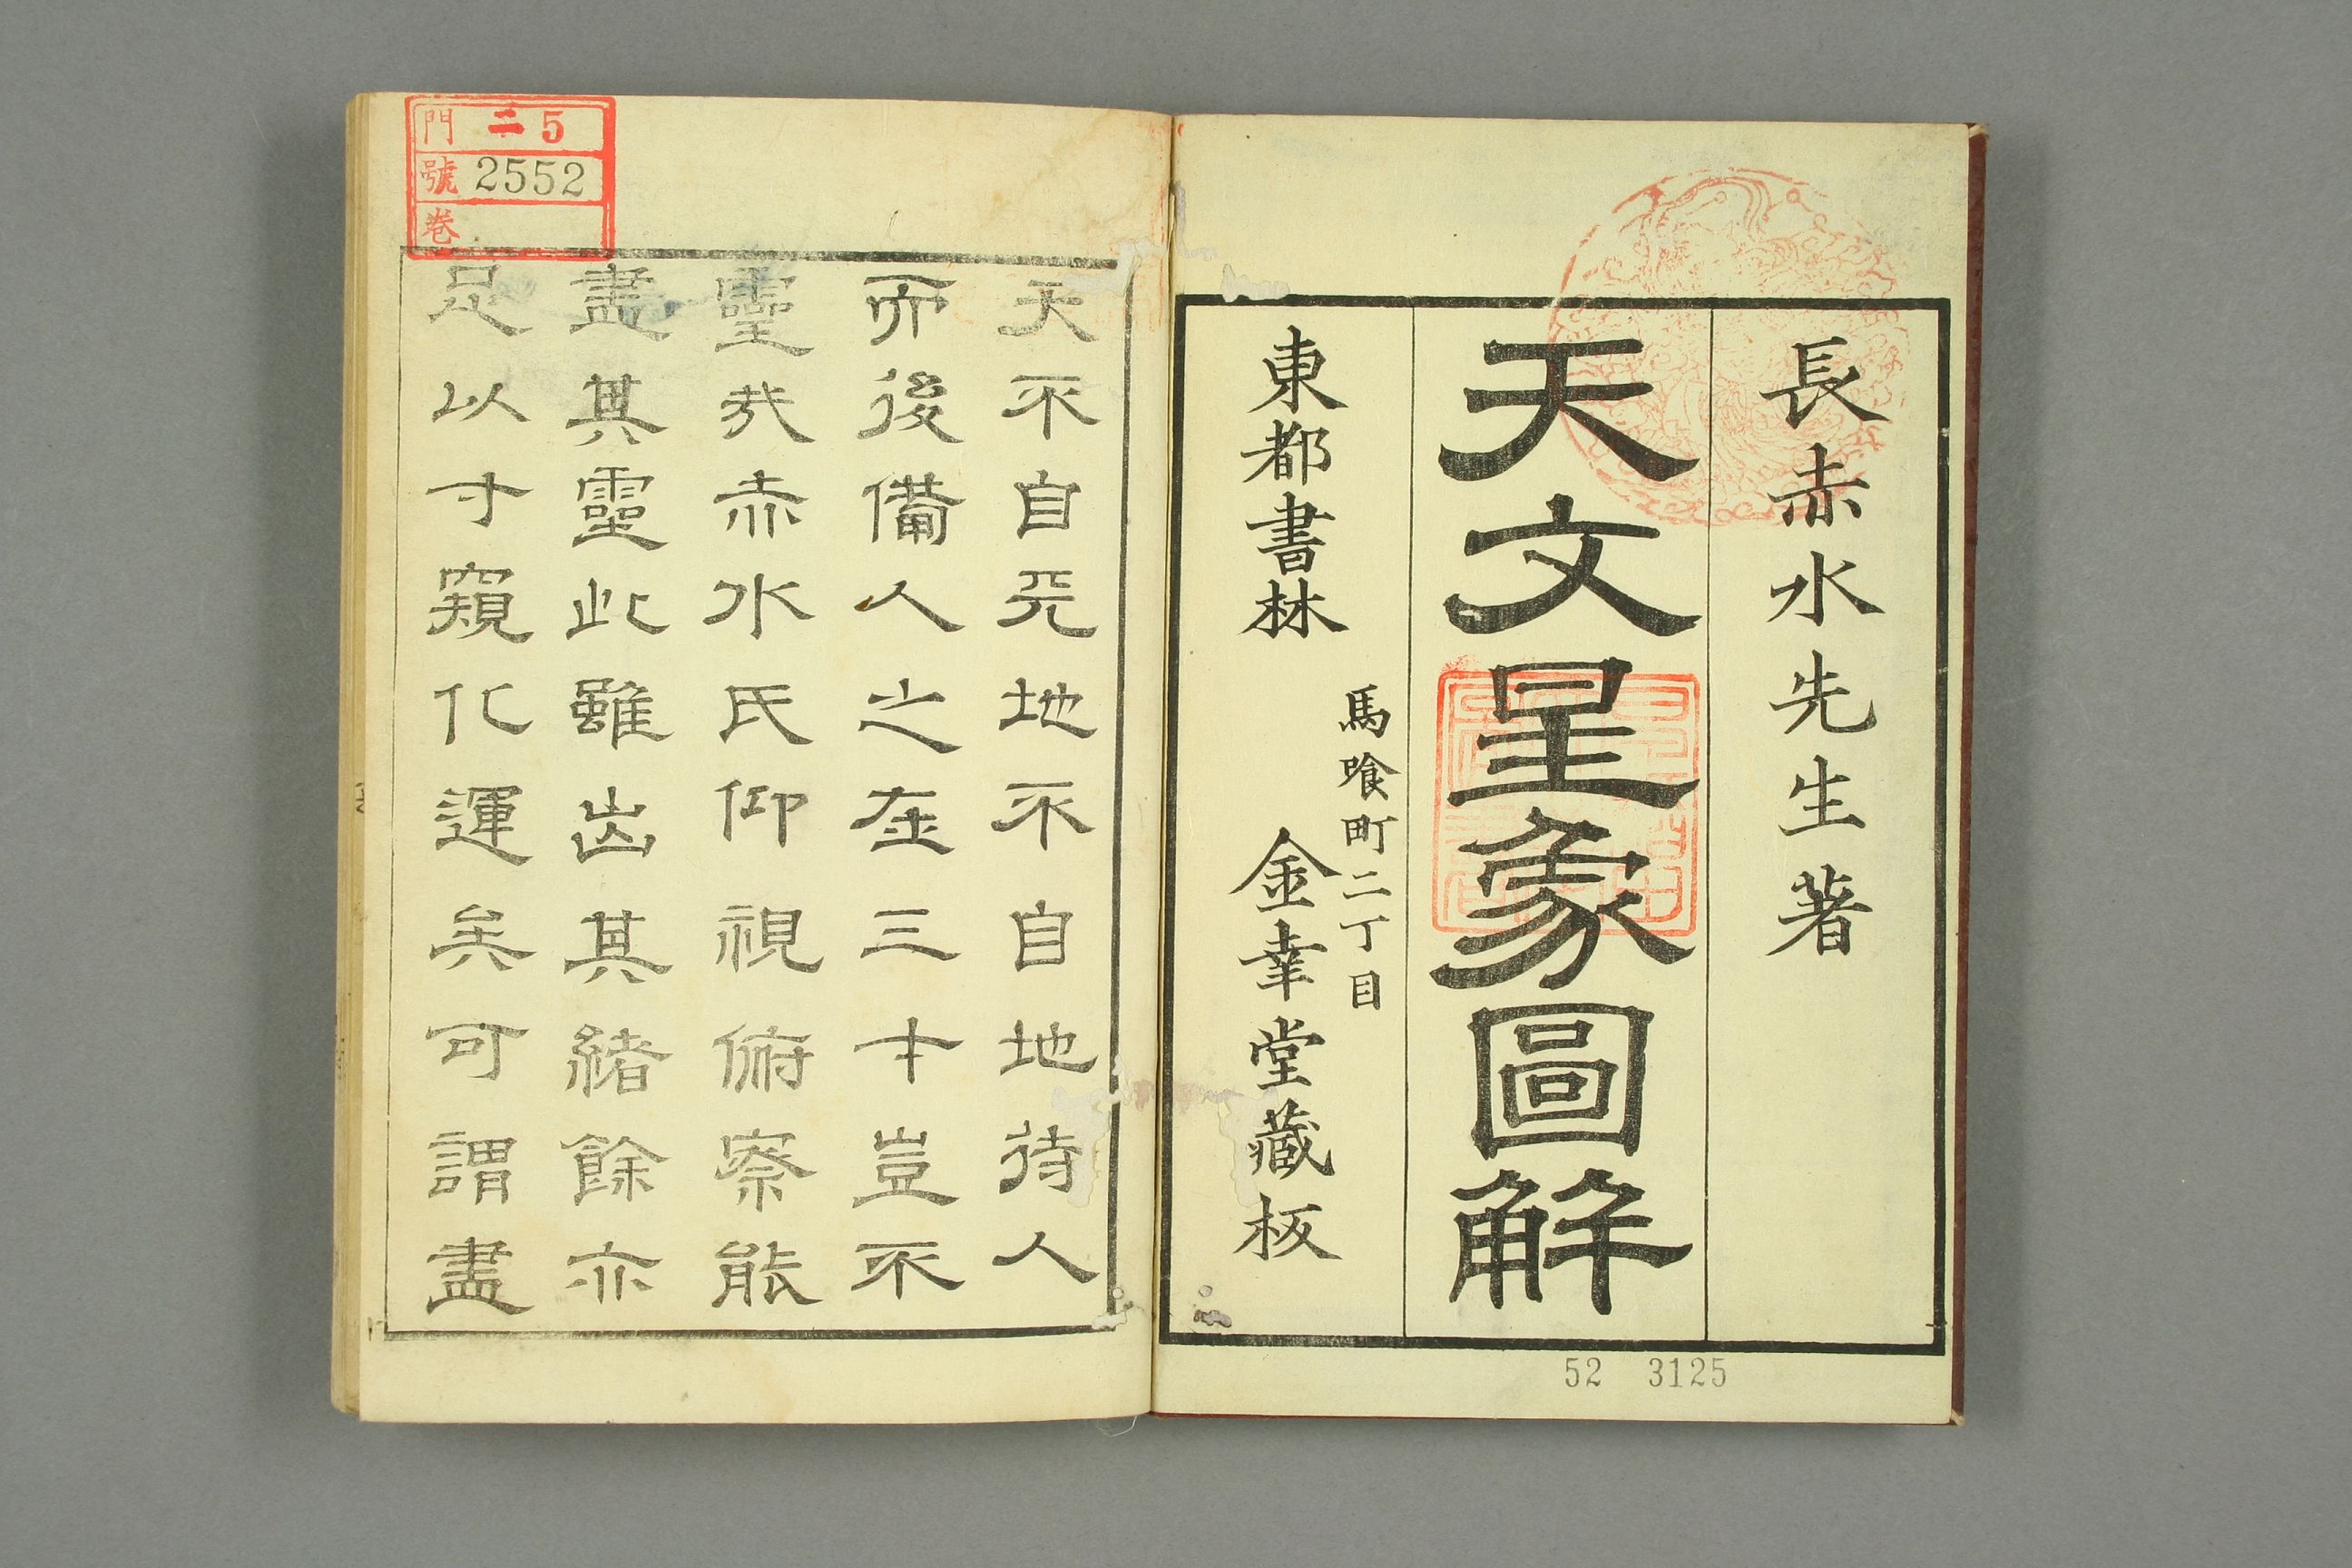 長赤水先生著
天文星象圖解
馬喰町二丁目
東都書林 金幸堂藏板
52 3125
門 二5
號 2552
卷
天不自天地不自地待人
而後備人之在三才豈不
靈哉赤水氏仰視俯察能
盡其靈此雖出其緒餘亦
足以寸窺化運矣可謂盡